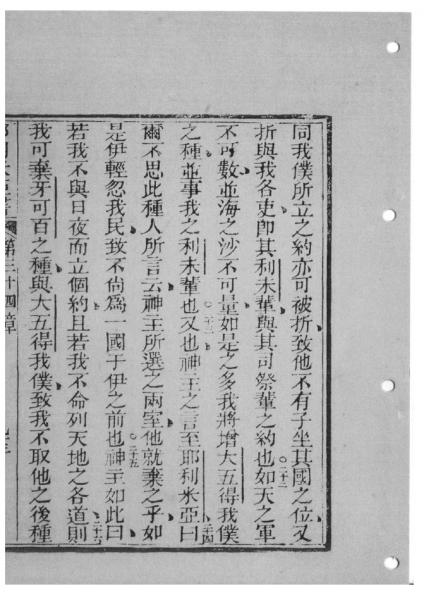 同我僕所立之約亦可被折致他不有子坐其國之位又
折與我各吏卽其利未輩與其司祭輩之約也〇二十二如天之軍
不可數並海之沙不可量如是之多我將增大五得我僕
之種並事我之利未輩也〇二十三又也神王之言至耶利米亞曰二十四
爾不思此種人所言云神王所選之兩室他就棄之乎如
是伊輕忽我民致不尙爲一國于伊之前也〇二十五神王如此曰
若我不與日夜而立個約且若我不命列天地之各道則二十六
我可棄牙可百之種與大五得我僕致我不取他之後種
第三十四章